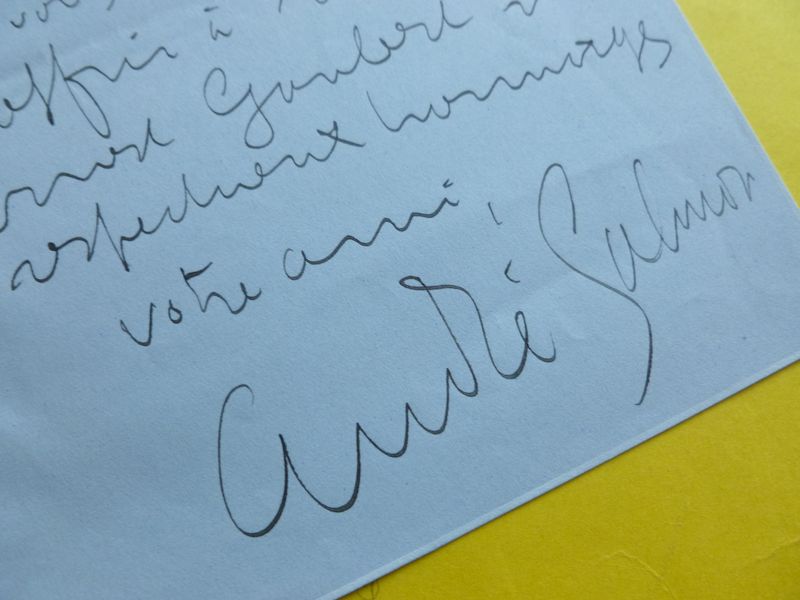 offrir à
Goubert
respectueux hommages
votre ami,
André Salmon